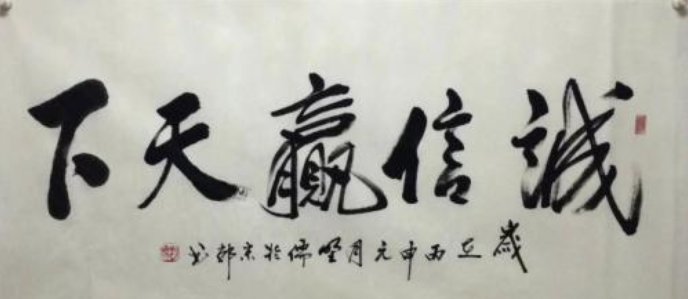 誠信贏天下
歲在丙申元月墅儒於京郊书